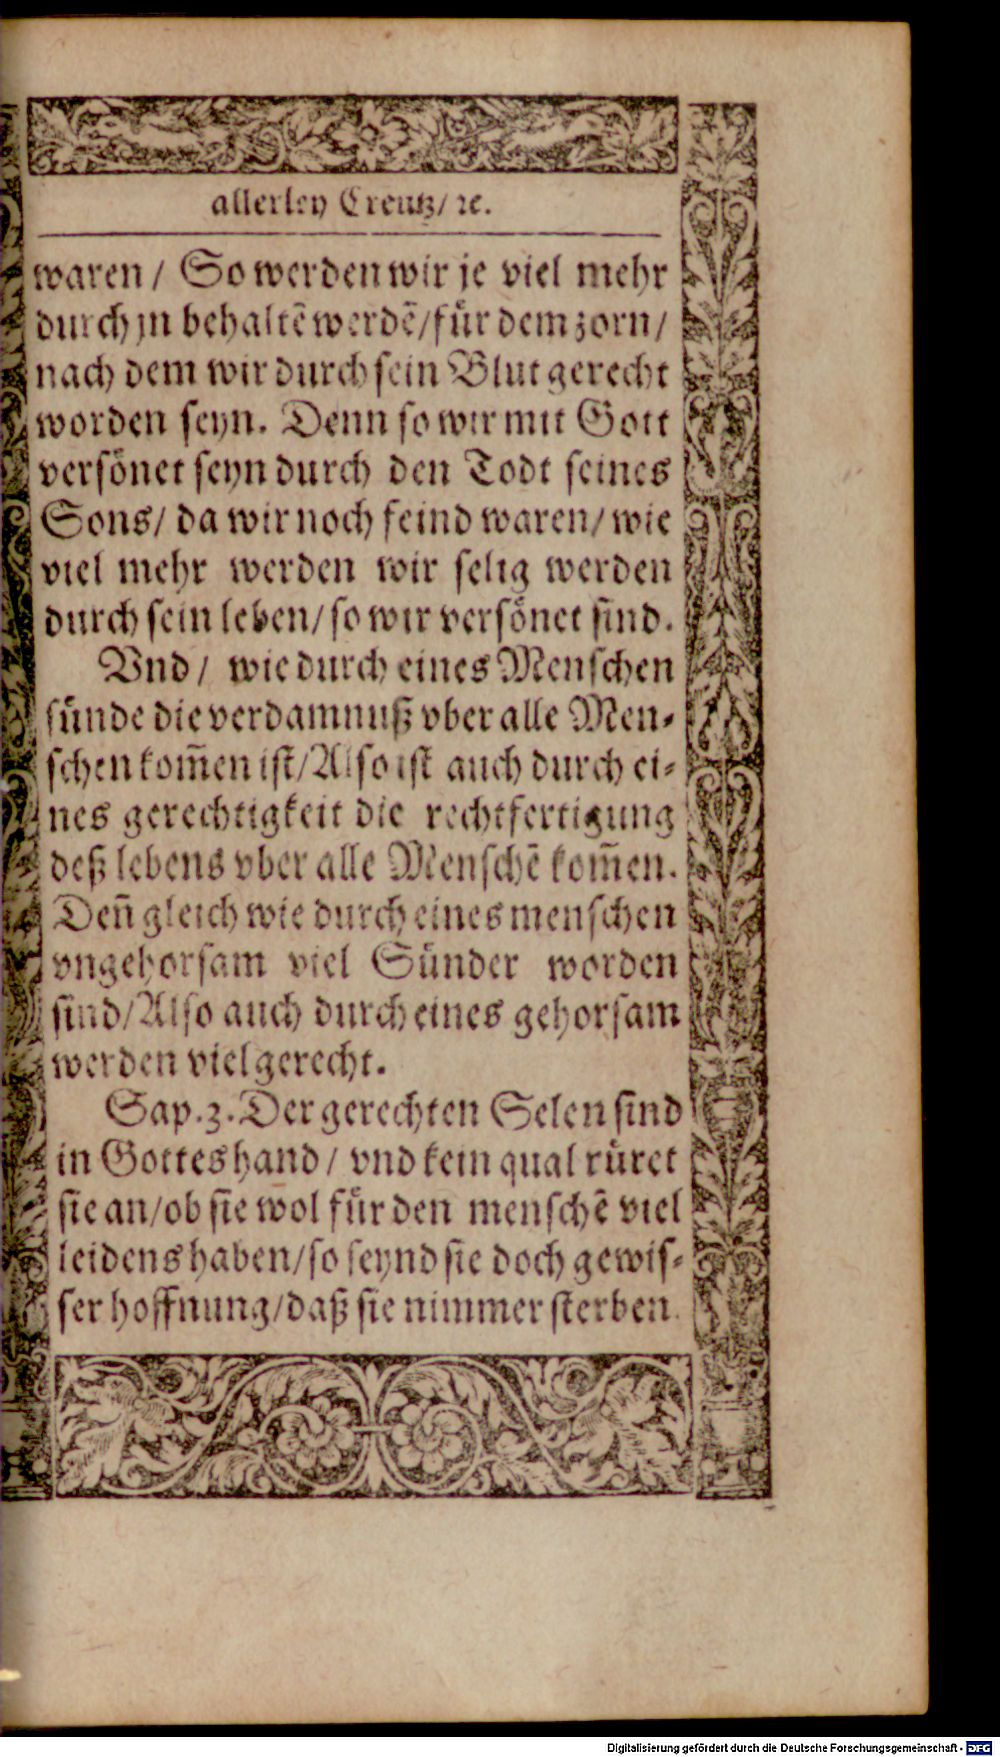 allerley Creutz/ ꝛc.
waren / So werden wir je viel mehr
durch jn behaltẽ werdẽ/für dem zorn/
nach dem wir durch sein Blut gerecht
worden seyn. Denn so wir mit Gott
versönet seyn durch den Todt seines
Sons/ da wir noch feind waren/ wie
viel mehr werden wir selig werden
durch sein leben/ so wir versönet sind.
Vnd / wie durch eines Menschen
sünde die verdamnuß vber alle Men-
schen kom̃en ist/Also ist auch durch ei-
nes gerechtigkeit die rechtfertigung
deß lebens vber alle Menschẽ kom̃en.
Den̄ gleich wie durch eines menschen
vngehorsam viel Sünder worden
sind/Also auch durch eines gehorsam
werden viel gerecht.
Sap. 3. Der gerechten Selen sind
in Gottes hand / vnd kein qual rüret
sie an/ob sie wol für den menschẽ viel
leidens haben/so seynd sie doch gewis-
ser hoffnung/daß sie nimmer sterben.
Digitalisierung gefördert durch die Deutsche Forschungsgemeinschaft - DFG